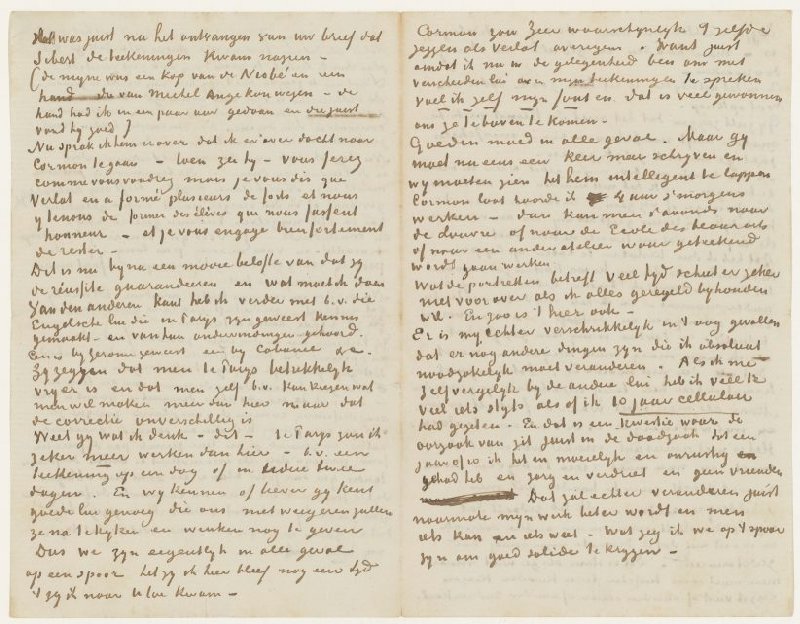 Het was juist na het ontvangen van uw brief dat
Sibert de teekeningen kwam nazien –
(de myne was een kop van de Niobé en een
hand – die van Michel Ange kon wezen – de
hand had ik in een paar uur gedaan en die juist
vond hy goed)
Nu sprak ik hem er over dat ik er over dacht naar
Cormon te gaan – toen zei hy – vous ferez
comme vous voudrez mais je vous dis que
Verlat en a formé plusieurs de forts et nous
y tenons de former des élèves qui nous fassent
honneur – et je vous engage bien fortement
de rester –
Dit is nu byna een mooie belofte van dat zy
de réussite guarandeeren en wat moet ik doen
Van den anderen kant heb ik verder met b.v. die
Engelsche lui die in Parys zyn geweest kennis
gemaakt – en van hun ondervindingen gehoord.
Een is by Gerome geweest een by Cabanel &c.
Zy zeggen dat men te Parys betrekkelyk
vryer is en dat men zelf b.v. kan kiezen wat
men wil maken meer dan hier maar dat
de correctie onverschillig is
Weet gy wat ik denk – dit – te Parys zou ik
zeker meer werken dan hier – b.v. een
teekening op een dag of in twee
dagen. En wy kennen of liever gy kent
goede lui genoeg die ons niet weigeren zullen
ze na te kyken en wenken nog te geven
Dus we zyn eigentlyk in alle geval
op een spoor het zy ik hier bleef nog een tyd
't zy ik naar U toe kwam –
Cormon zou zeer waarschynlyk 't zelfde
zeggen als Verlat overigens. Want juist
omdat ik nu in de gelegenheid ben om met
verscheiden lui over myn teekeningen te spreken
voel ik zelf myn fouten en dat is veel gewonnen
om ze te boven te komen –
Goeden moed in alle geval. Maar gy
moet nu eens een keer meer schryven en
wy moeten zien het heens intelligent te lappen
Cormon laat hoorde ik 4 uur s'morgens
werken – dan kan men s'avonds naar
de Louvre of naar de Ecole des beaux arts
of naar een ander atelier waar geteekend
wordt gaan werken
Wat de portretten betreft veel tyd schiet er zeker
niet voor over als ik alles geregeld byhouden
wil. En zoo is 't hier ook –
Er is my echter verschrikkelyk in 't oog gevallen
dat er nog andere dingen zyn die ik absoluut
noodzakelyk moet veranderen. Als ik me
zelf vergelyk by de andere lui heb ik veel te
veel iets styfs alsof ik 10 jaar cellulair
had gezeten. En dat is een kwestie waar de
oorzaak van zit juist in de daadzaak dat een
jaar of 10 ik het in moeielyk en onrustig
gehad heb en zorg en verdriet en geen vrienden
Dat zal echter veranderen juist
naarmate myn werk beter wordt en men
iets kan en iets weet – Wat zeg ik we op 't spoor
zyn om goed solide te krygen –